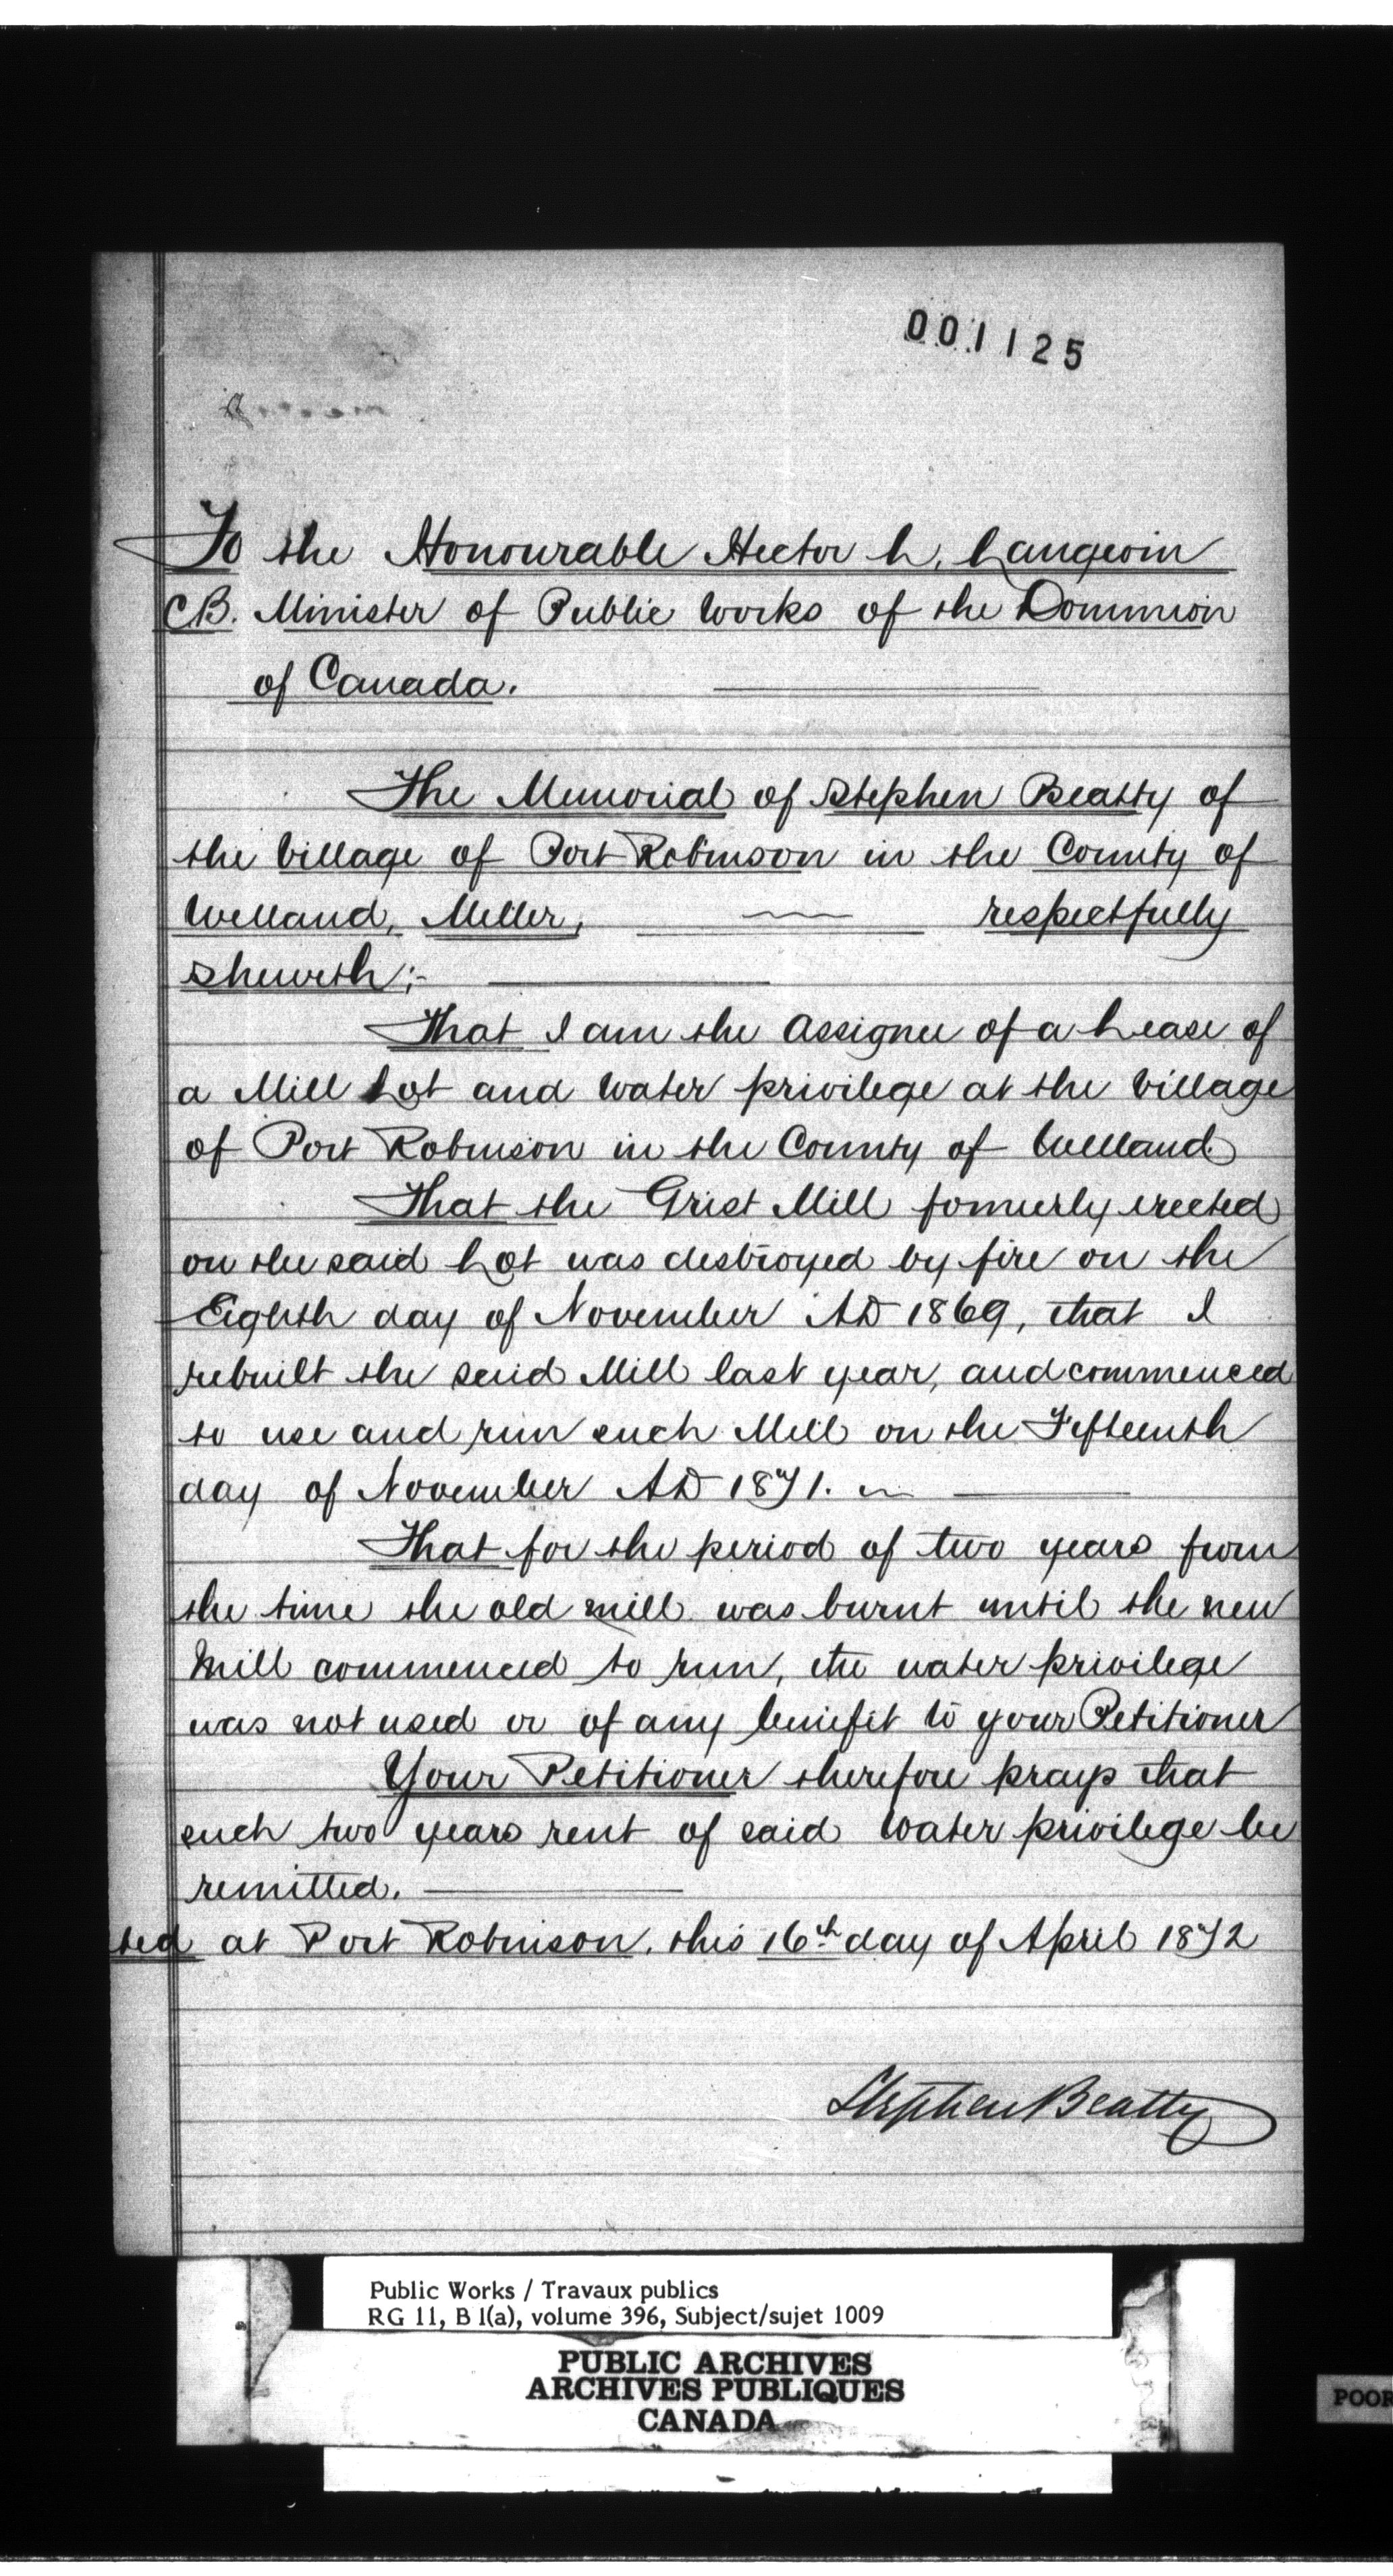 001125
To the Honourable Hector L. Langevin
CB. Minister of Public Works of the Dominion
of Canada.
The Memorial of Stephen Beatty of
the Village of Port Robinson in the County of
Welland, Miller, respectfully
Sheweth;-
That I am the Assignee of a Lease of
a Mill Lot and Water privilege at the Village
of Port Robinson in the County of Welland.
That the Grist Mill formerly erected
on the said Lot was destroyed by fire on the
Eighth day of November AD 1869, that I
rebuilt the said Mill last year, and commenced
to use and run such Mill on the Fifteenth
day of November AD 1871.
That for the period of two years from
the time the old mill was burnt until the new
Mill commenced to run, the water privilege
was not used or of any benefit to your Petitioner
Your Petitioner therefore prays that
such two years rent of said Water privilege be
remitted.
ted at Port Robinson, this 16th day of April 1872
Stephen Beatty
Public Works / Travaux publics
RG 11, B 1(a), volume 396, Subject/sujet 1009
PUBLIC ARCHIVES
ARCHIVES PUBLIQUES
CANADA
POOR